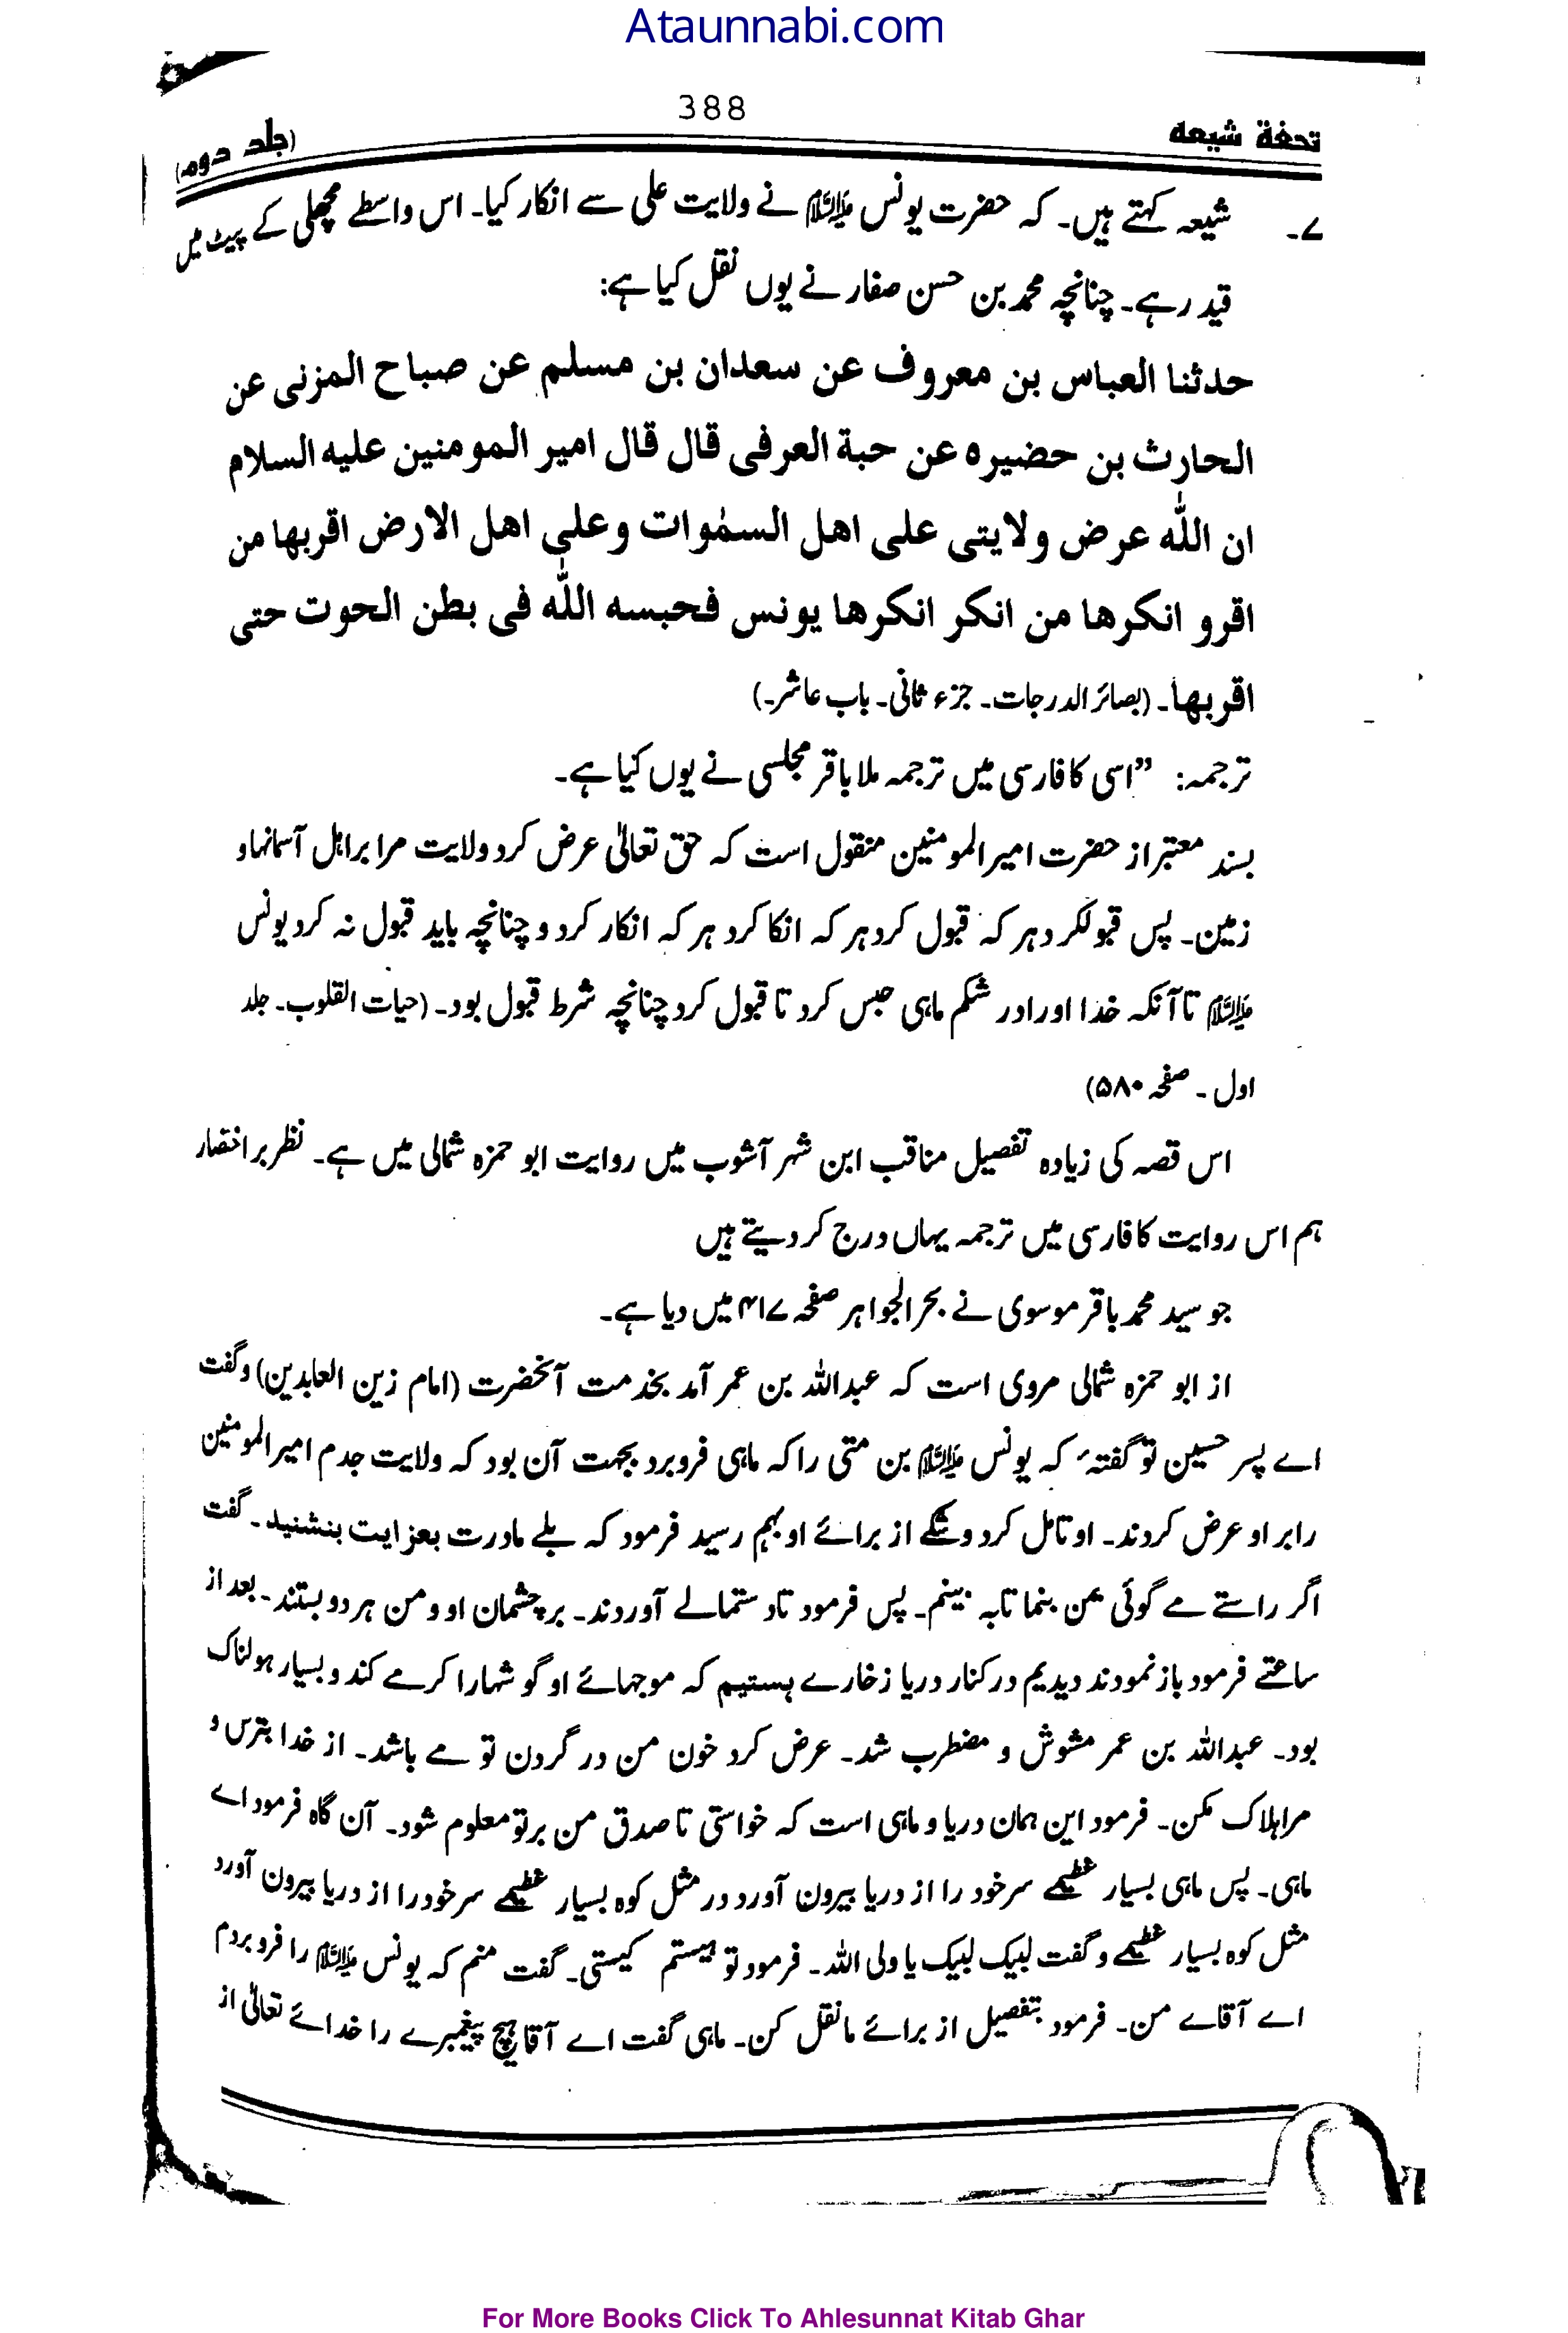 Ataunnabi.com
388
تحفۂ شیعہ
(جلد دوم)
۷۔ شیعہ کہتے ہیں۔ کہ حضرت یونس علیہ السلام نے ولایت علی سے انکار کیا۔ اس واسطے مچھلی کے پیٹ میں
قید رہے۔ چنانچہ محمد بن حسن صفار نے یوں نقل کیا ہے:
حدثنا العباس بن معروف عن سعدان بن مسلم عن صباح المزنی عن
الحارث بن حضیرہ عن حبة العرفی قال قال امیر المومنین علیه السلام
ان اللّٰه عرض ولایتی علی اهل السمٰوات وعلی اهل الارض اقربها من
اقرو انکرها من انکر انکرها یونس فحبسه اللّٰه فی بطن الحوت حتی
اقربها۔ (بصائر الدرجات۔ جزء ثانی۔ باب عاشر۔)
ترجمہ: ”اسی کا فارسی میں ترجمہ ملا باقر مجلسی نے یوں کیا ہے۔
بسند معتبر از حضرت امیر المومنین منقول است کہ حق تعالیٰ عرض کرد ولایت مرا براہل آسمانہا و
زمین۔ پس قبولکرد ہر کہ قبول کرد ہر کہ انکا کرد ہر کہ انکار کرد و چنانچہ باید قبول نہ کرد یونس
علیہ السلام تا آنکہ خدا اورا در شکم ماہی حبس کرد تا قبول کرد چنانچہ شرط قبول بود۔ (حیات القلوب۔ جلد
اول ۔ صفحہ ۵۸۰)
اس قصہ کی زیادہ تفصیل مناقب ابن شہر آشوب میں روایت ابو حمزہ شمالی میں ہے۔ نظر بر اختصار
ہم اس روایت کا فارسی میں ترجمہ یہاں درج کر دیتے ہیں
جو سید محمد باقر موسوی نے بحر الجواہر صفحہ ۴۱۷ میں دیا ہے۔
از ابو حمزہ شمالی مروی است کہ عبداللہ بن عمر آمد بخدمت آنحضرت (امام زین العابدین) وگفت
اے پسر حسین تو گفتۂ کہ یونس علیہ السلام بن متی را کہ ماہی فروبرد بجہت آن بود کہ ولایت جدم امیر المومنین
را بر او عرض کردند۔ او تامل کرد و شکے از برائے او بہم رسید فرمود کہ بلے مادرت بعزایت بنشنید۔ گفت
اگر راستے مے گوئی بمن بنما تابہ بینم۔ پس فرمود تا دستمالے آوردند۔ بر چشمان او ومن ہر دو بستند۔ بعد از
ساعتے فرمود باز نمودند دیدیم در کنار دریا زخارے ہستیم کہ موجہائے او گو شہارا کرے کند و بسیار ہولناک
بود۔ عبداللہ بن عمر مشوش و مضطرب شد۔ عرض کرد خون من در گردن تو مے باشد۔ از خدا بترس و
مرا ہلاک مکن۔ فرمود این ہمان دریا و ماہی است کہ خواستی تا صدق من بر تو معلوم شود۔ آن گاہ فرمود اے
ماہی۔ پس ماہی بسیار عظیمے سر خود را از دریا بیرون آورد در مثل کوہ بسیار عظیمے سر خود را از دریا بیرون آورد
مثل کوہ بسیار عظیمے و گفت لبیک لبیک یا ولی اللہ۔ فرمود تو ہیستم کیستی۔ گفت منم کہ یونس علیہ السلام را فروبردم
اے آقاے من۔ فرمود بتفصیل از برائے ما نقل کن۔ ماہی گفت اے آقا ہیچ پیغمبرے را خدائے تعالیٰ از
For More Books Click To Ahlesunnat Kitab Ghar